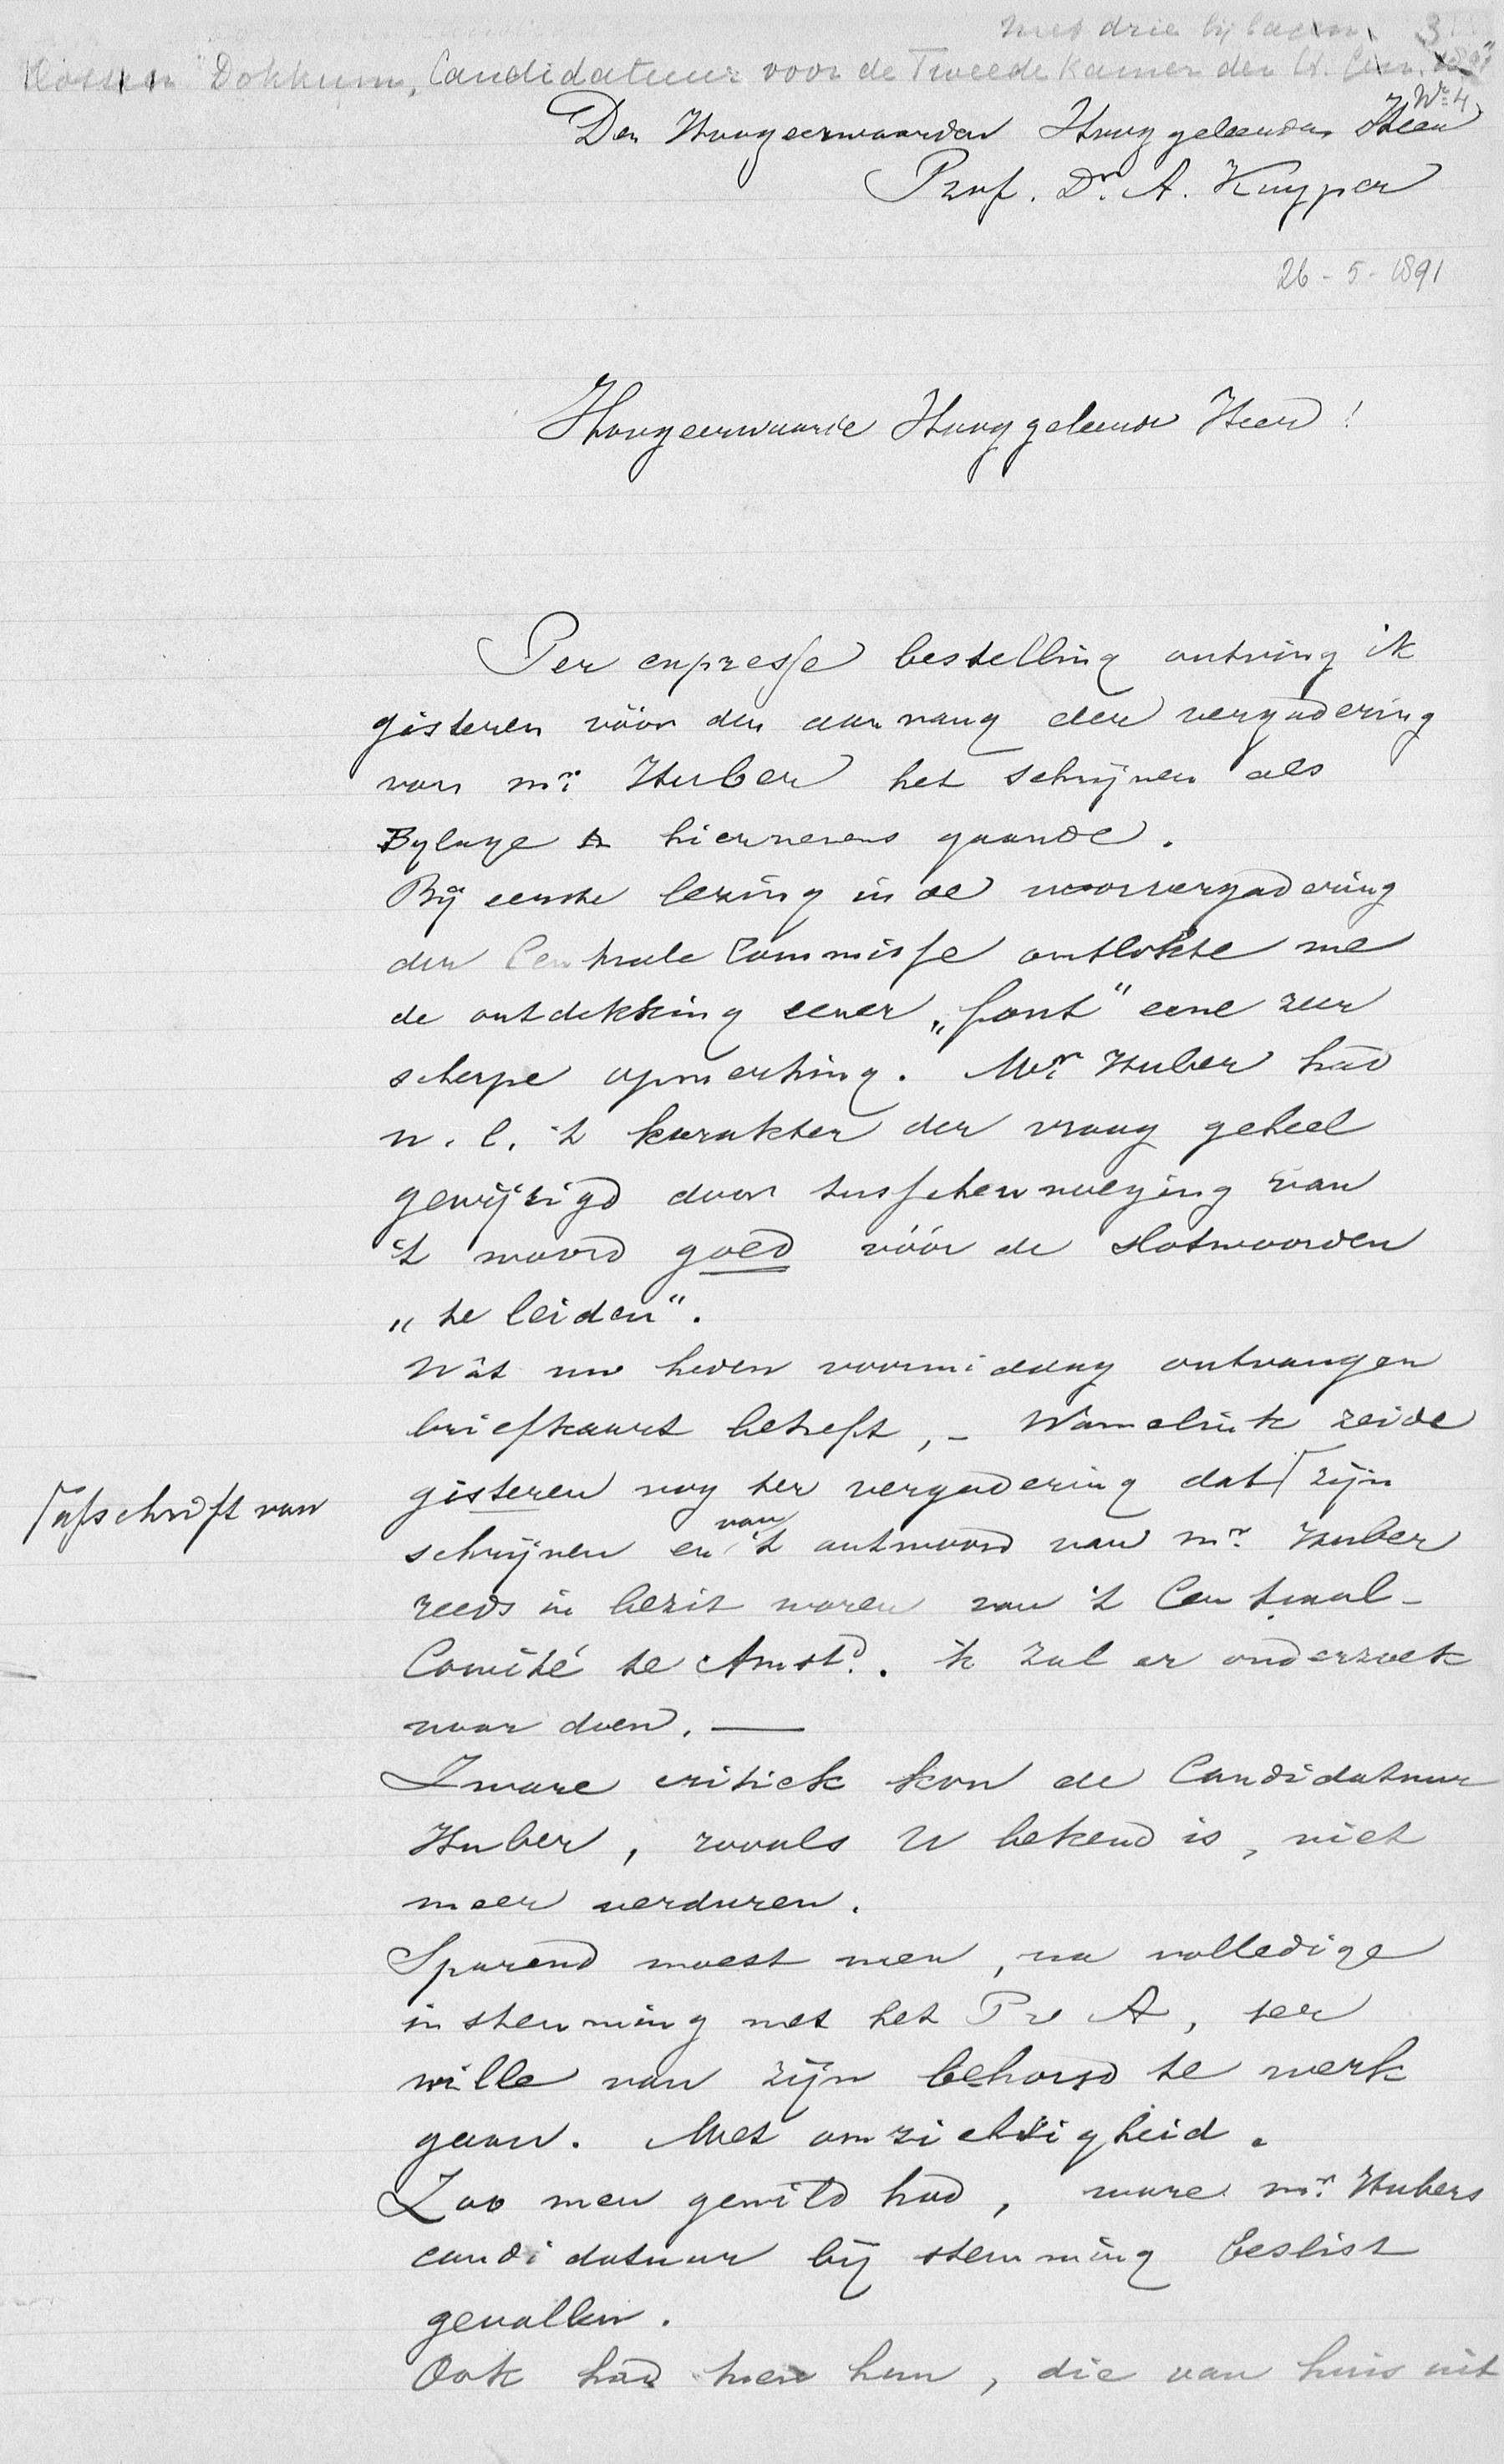 met drie bijlagen. 3
Dokkum, Candidatuur voor de Tweede Kamer der St. Gen. 1891
No. 4
Den Hoogeerwaarden Hooggeleerden Heer
Prof. Dr. A. Kuyper
26-5-1891
Hoogeerwaarde Hooggeleerde Heer!
Per expresse bestelling ontving ik
gisteren vóór den aanvang der vergadering
van mr. Huber het schrijven als
Bylage A hiernevens gaande.
Bij eerste lezing in de voorvergadering
der Centrale Commissie ontlokte me
de ontdekking eener „fout" eene zeer
scherpe opmerking. Mr. Huber had
n.l. 't karakter der vraag geheel
gewijzigd door tusschenvoeging van
't woord goed vóór de slotwoorden
„te leiden".
Wat uw heden voormiddag ontvangen
briefkaart betreft, - Wamelink zeide
gisteren nog ter vergadering dat ⌈ zijn
⌈ afschrift van
schrijven en van 't antwoord van mr. Huber
reeds in bezit waren van 't Centraal-
Comité te Amstd. ik zal er onderzoek
naar doen. —
Zware critiek kon de Candidatuur
Huber, zooals U bekend is, niet
meer verduren.
Sparend moest men, na volledige
instemming met het Pr v A, ter
wille van zijn behoud te werk
gaan. Met omzichtigheid.
Zoo men gewild had, ware mr. Hubers
candidatuur bij stemming beslist
gevallen.
Ook had men hun, die van huis uit